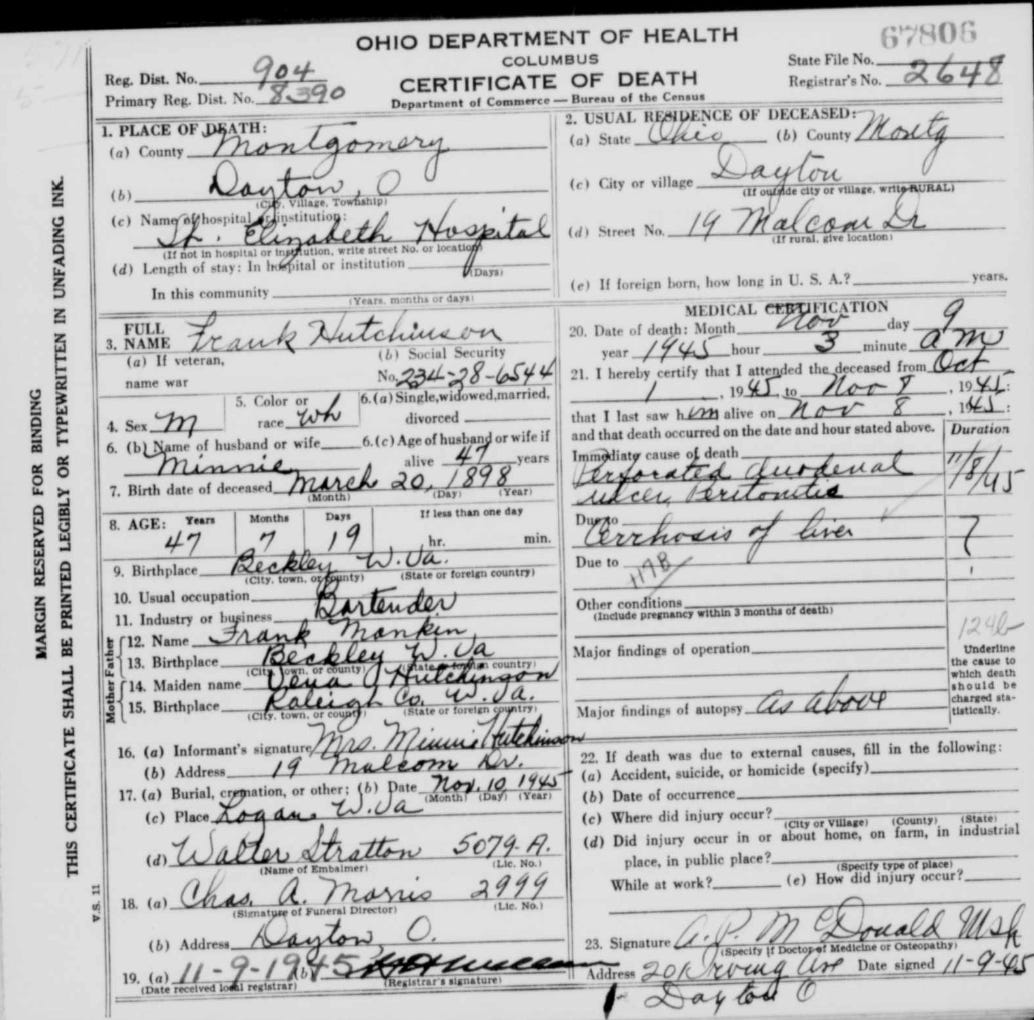 OHIO DEPARTMENT OF HEALTH
COLUMBUS
CERTIFICATE OF DEATH
Department of Commerce — Bureau of the Census
67806
Reg. Dist. No. 904
Primary Reg. Dist. No. 8390
State File No.
Registrar's No. 2648
MARGIN RESERVED FOR BINDING
THIS CERTIFICATE SHALL BE PRINTED LEGIBLY OR TYPEWRITTEN IN UNFADING INK.
V.S. 11
1. PLACE OF DEATH:
(a) County Montgomery
(b) Dayton, O
(City, Village, Township)
(c) Name of hospital or institution:
St. Elizabeth Hospital
(If not in hospital or institution, write street No. or location)
(d) Length of stay: In hospital or institution
(Days)
In this community
(Years, months or days)
2. USUAL RESIDENCE OF DECEASED:
(a) State Ohio (b) County Montg
(c) City or village Dayton
(If outside city or village, write RURAL)
(d) Street No. 19 Malcom Dr
(If rural, give location)
(e) If foreign born, how long in U. S. A.? years.
3. FULL NAME Frank Hutchinson
(a) If veteran,
name war
(b) Social Security
No. 234-28-6544
4. Sex M
5. Color or
race Wh
6. (a) Single, widowed, married,
divorced
6. (b) Name of husband or wife
Minnie
6. (c) Age of husband or wife if
alive 47 years
7. Birth date of deceased March 20, 1898
(Month) (Day) (Year)
8. AGE: Years Months Days If less than one day
47 7 19 hr. min.
9. Birthplace Beckley W. Va.
(City, town, or county) (State or foreign country)
10. Usual occupation
Bartender
11. Industry or business
Father
12. Name Frank Mankin
13. Birthplace Beckley W. Va
(City, town, or county) (State or foreign country)
Mother
14. Maiden name Vena Hutchinson
15. Birthplace Raleigh Co. W. Va.
(City, town, or county) (State or foreign country)
16. (a) Informant's signature Mrs. Minnie Hutchinson
(b) Address 19 Malcom Dr.
17. (a) Burial, cremation, or other; (b) Date Nov. 10, 1945
(Month) (Day) (Year)
(c) Place Logan W. Va
(d) Walter Stratton 5079 A.
(Name of Embalmer) (Lic. No.)
18. (a) Chas. A. Morris 2999
(Signature of Funeral Director) (Lic. No.)
(b) Address Dayton, O.
19. (a) 11-9-1945 (b)
(Date received local registrar) (Registrar's signature)
MEDICAL CERTIFICATION
20. Date of death: Month Nov day 9
year 1945 hour 3 minute AM
21. I hereby certify that I attended the deceased from Oct
1, 1945, to Nov 8, 1945;
that I last saw him alive on Nov 8, 1945;
and that death occurred on the date and hour stated above.
Duration
Immediate cause of death
Perforated duodenal 11/8/45
ulcer, Peritonitis
Due to
Cerrhosis of liver ?
Due to
117B
Other conditions
(Include pregnancy within 3 months of death)
124b
Major findings of operation
Major findings of autopsy As above
Underline
the cause to
which death
should be
charged sta-
tistically.
22. If death was due to external causes, fill in the following:
(a) Accident, suicide, or homicide (specify)
(b) Date of occurrence
(c) Where did injury occur?
(City or Village) (County) (State)
(d) Did injury occur in or about home, on farm, in industrial
place, in public place?
(Specify type of place)
While at work? (e) How did injury occur?
23. Signature A. P. McDonald
(Specify if Doctor of Medicine or Osteopathy)
Address 201 Irving Ave Date signed 11-9-45
Dayton O